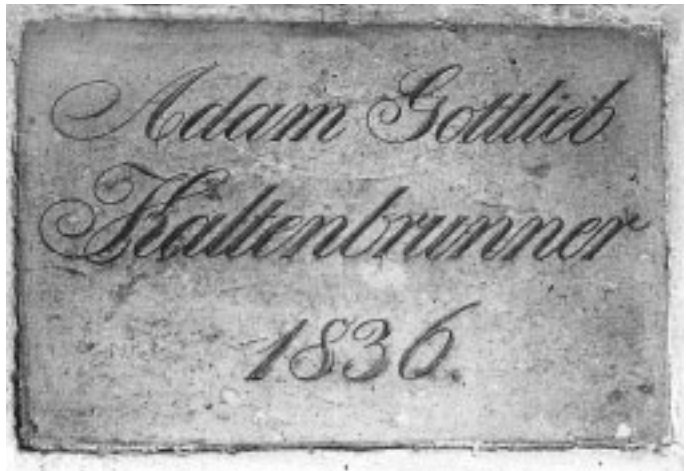 Adam Gottlieb
Kaltenbrunner
1836.